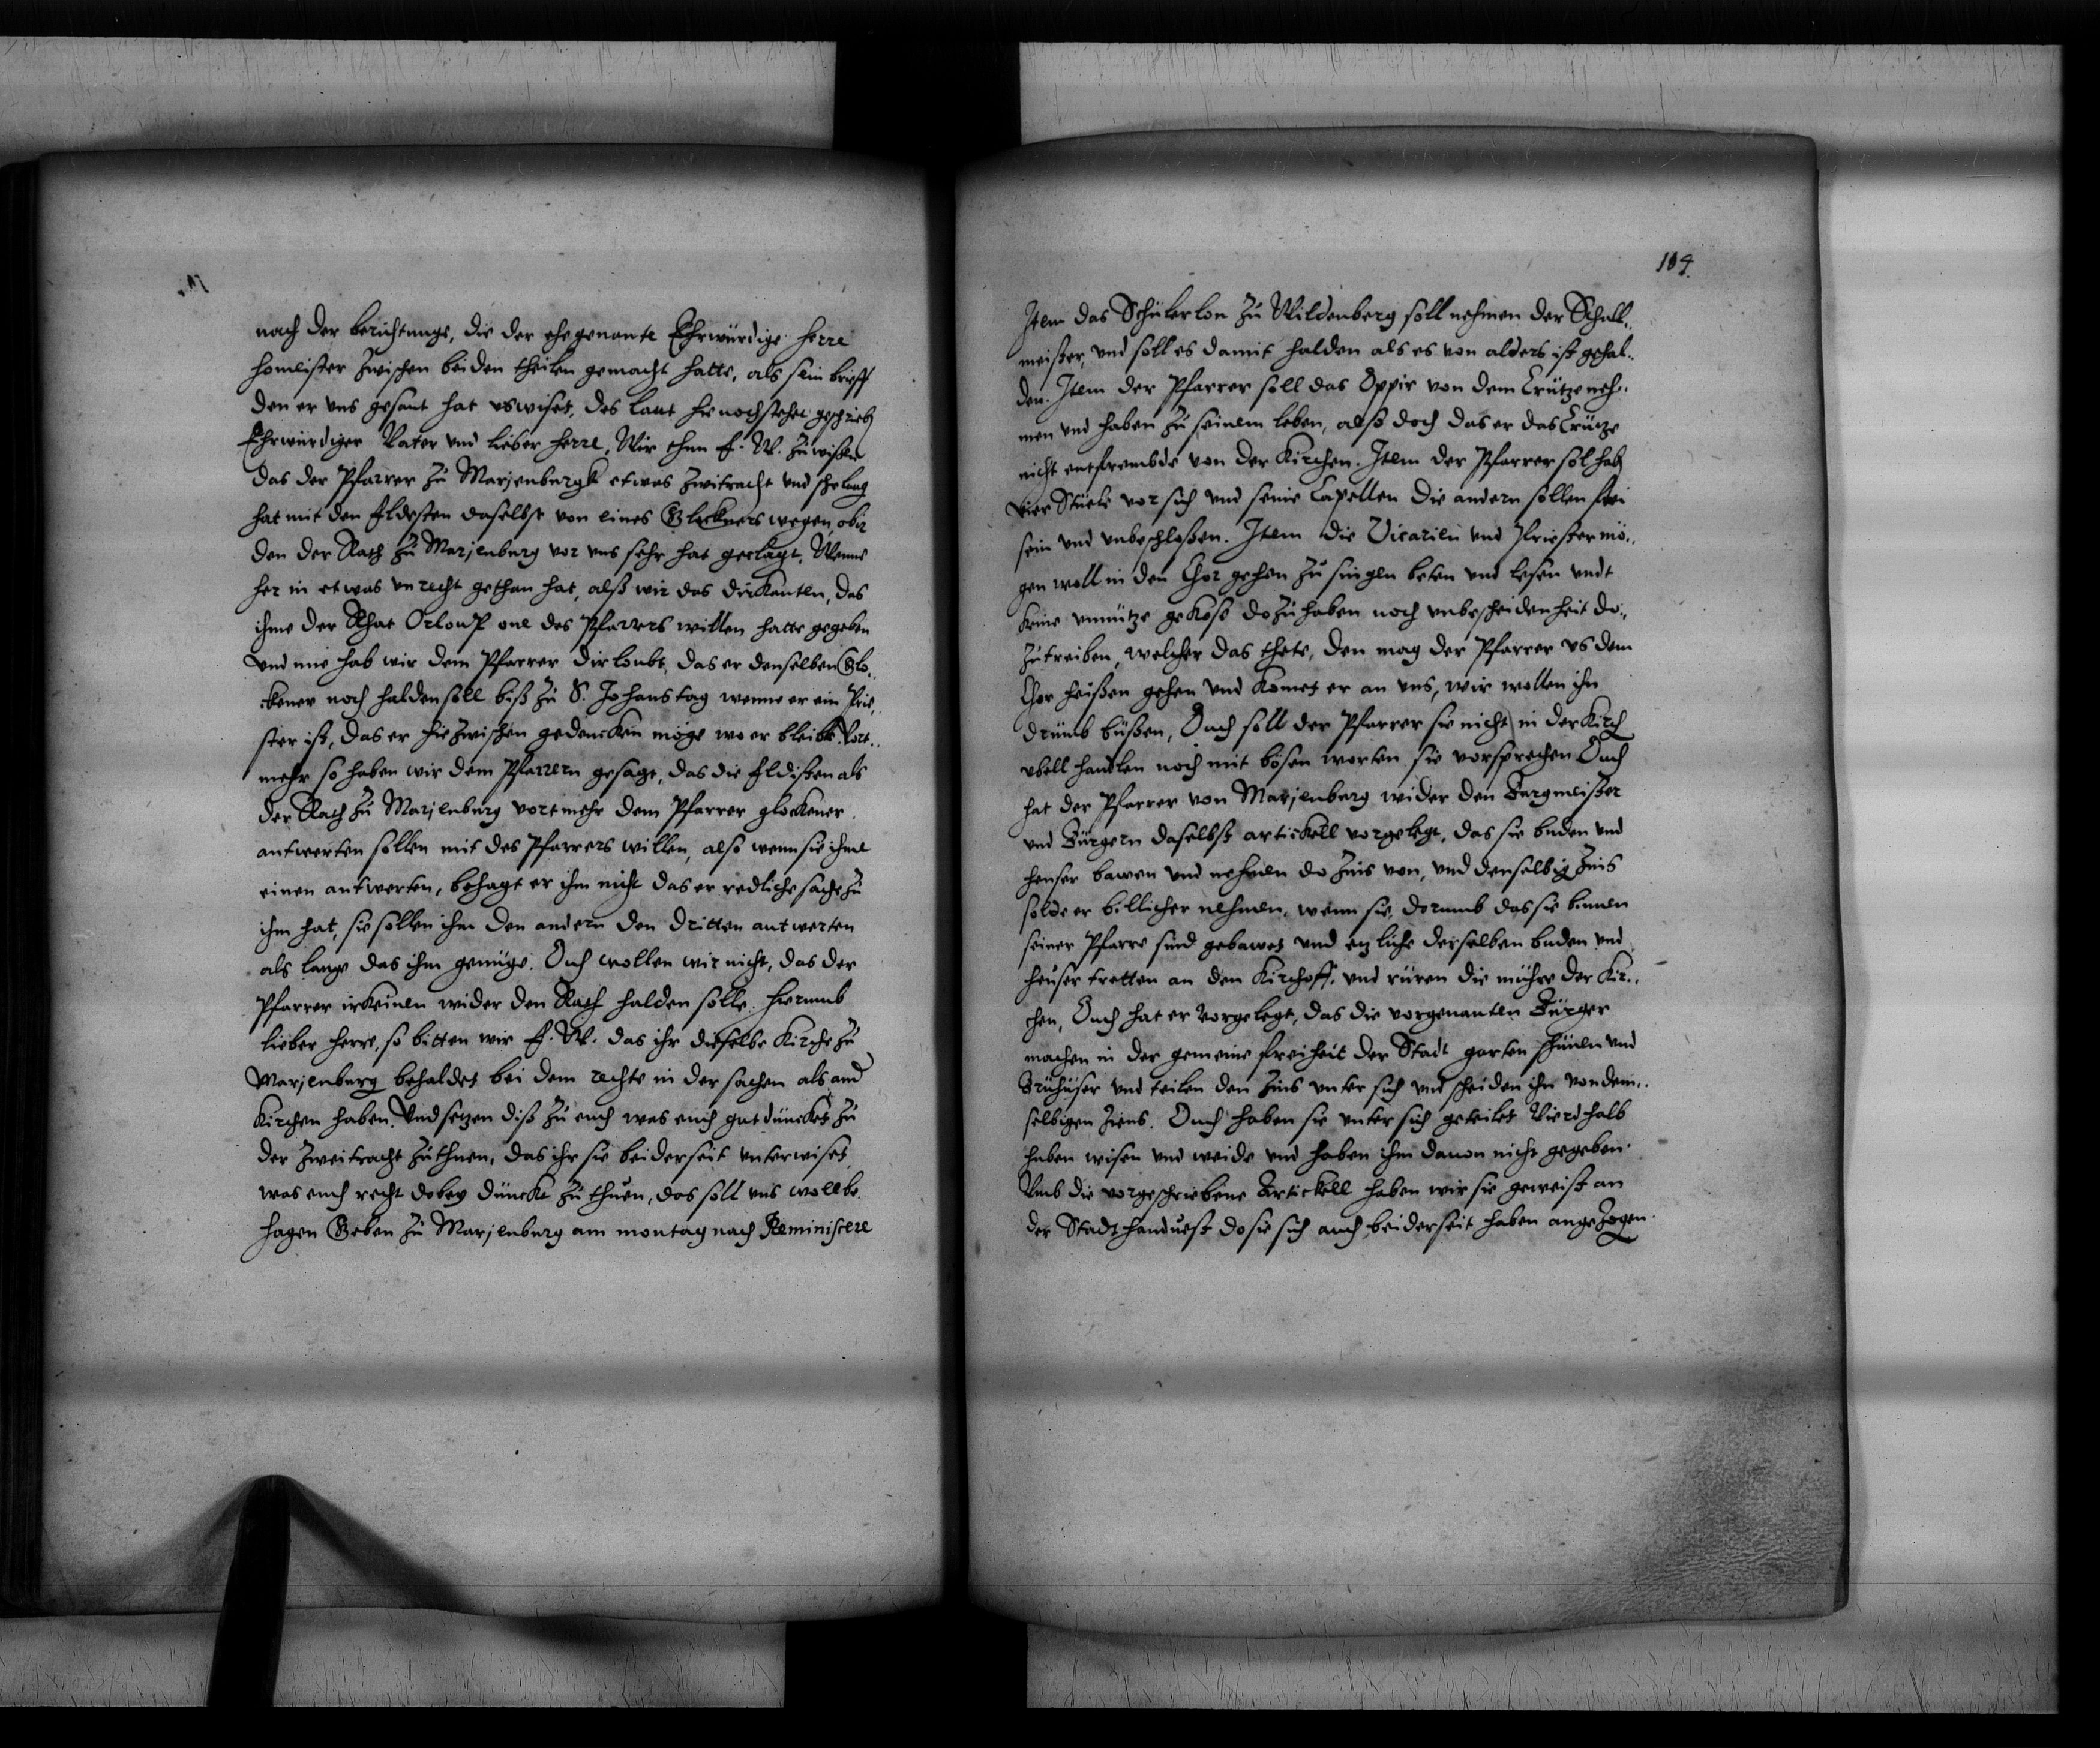 nach der berichtunge, die der ehegenante Ehrwürdige Herre
homeister zwischen beiden theilen gemacht hatte, als sein brieff
den er vns gesant hat vswiset, des laut hienochstehet geschrieben
Ehrwürdiger Vater vnd lieber herre, Wir thun E. W. zuwissen
das der Pfarrer zu Marienburgk etwas zwitracht vnd schelung
hat mit den Eldesten daselbst von eines Glockners wegen, obir
den der Rath zu Marienburg vor vns sehr hat geclagt, Wenne
her in etwas vnrecht gethan hat, alß wir das dirkanten, das
ihme der Rhat Orloup one des Pfarrers willen hatte gegeben
Vnd nu hab wir dem Pfarrer dirloubt, das er denselben Glo„
ckener noch halden soll biß zu S. Johans tag wenne er ein Prie„
ster ist, das er hiezwischen gedencken möge wo er bleibe. Vort„
mehr so haben wir dem Pfarrern gesaget, das die Eldisten als
der Rath zu Marienburg vortmehr dem Pfarrer glockener
antwerten sollen mit des Pfarrers willen, also wenn sie ihme
einen antwerten, behagt er ihm nicht das er redliche sache zu
ihm hat, sie sollen ihm den andern den dritten antwerten
als lange das ihm genüge. Ouch wollen wir nicht, das der
Pfarrer irkeinen wider den Rath halden solle. Hierumb
lieber herre, so bitten wir E. W. das ihr dieselbe Kirche zu
Marienburg behaldet bei dem rechte in der sachen als and
Kirchen haben. Vnd setzen diß zu euch was euch gut düncket zu
der zweitracht zuthuen, das ihr sie beiderseit vnterwiset,
was euch recht dobey düncke zu thuen, das soll vns woll be„
hagen Geben zu Marienburg am montag nach Reminiscere
104.
Item das Schülerlon zu Wildenberg soll nehmen der Schull„
meister, vnd soll es damit halden als es von alders ist gehal„
den. Item der Pfarrer soll das Oppir von dem Crütze neh„
men vnd haben zu seinem leben, alß doch das er das Crütze
nicht entfrembde von der Kirchen. Item der Pfarrer sol haben
vier Stüele vor sich vnd seine Capellen die andern sollen frei
sein vnd vnbeschloßen. Item die Vicarien vnd Priester mö„
gen woll in den Chor gehen zu singen beten vnd lesen vndt
keine vnnütze geköse dozuhaben noch vnbescheidenheit do„
zutreiben, welcher das thete, den mag der Pfarrer vs dem
Chor heißen gehen vnd komet er an vns, wir wollen ihn
drumb büßen, Ouch soll der Pfarrer sie nicht in der Kirch
vbell handlen noch mit bösen worten sie vorsprechen Ouch
hat der Pfarrer von Marienburg wider den Burgmeister
vnd Bürgern daselbst artickell vorgelegt, das sie buden vnd
heuser bawen vnd nehmen do Zins von, vnd denselbig Zins
solde er billicher nehmen, wenn sie, dorumb das sie binnen
seiner Pfarre sind gebawet vnd etzliche derselben buden vnd
heuser tretten an den Kirchoff, vnd rüren die mühre der Kir„
chen, Ouch hat er vorgelegt, das die vorgenanten Bürger
machen in der gemeine freiheit der Stadt garten schünen vnd
Brühüser vnd teilen den Zins vnter sich vnd scheiden ihn von dem„
selbigen Ziens. Ouch haben sie vnter sich geteilet Vierdhalb
huben wisen vnd weide vnd haben ihm dauon nicht gegeben.
Vmb die vorgeschriebene Artickell haben wir sie geweist an
der Stadt handuest do sie sich auch beiderseit haben angezogen.